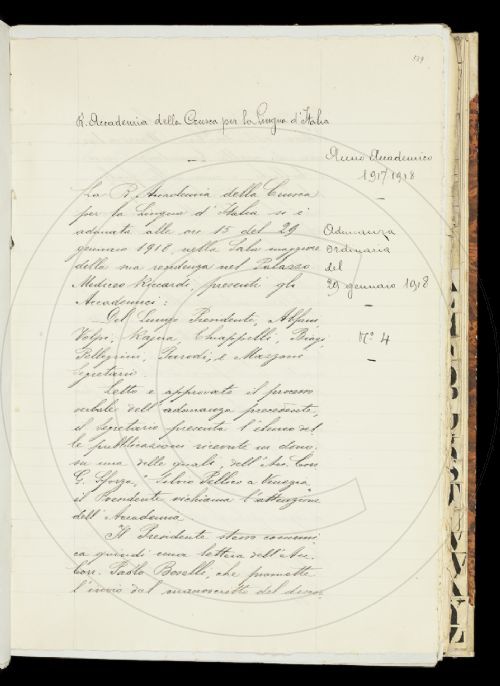 R. Accademia della Crusca per la Lingua d'Italia
Anno Accademico
1917-1918
Adunanza
ordinaria
del
29 gennaio 1918
N.° 4
La R. Accademia della Crusca
per la Lingua d'Italia si è
adunata alle ore 15 del 29
gennaio 1918, nella Sala maggiore
della sua residenza nel Palazzo
Mediceo Riccardi, presenti gli
Accademici:
Del Lungo Presidente,
Volpi, Rajna, Chiappelli, Biagi,
Pellegrini, Parodi, e Mazzoni
Segretario.
Letto e approvato il processo
verbale dell'adunanza precedente,
il Segretario presenta l'elenco del-
le pubblicazioni ricevute in dono;
su una delle quali, dell'Acc. Corr.
G. Sforza, "Silvio Pellico a Venezia,
il Presidente richiama l'attenzione
dell'Accademia.
Il Presidente stesso comuni-
ca quindi una lettera dell'Acc.
Corr. Paolo Boselli, che promette
l'invio del manoscritto del discor-